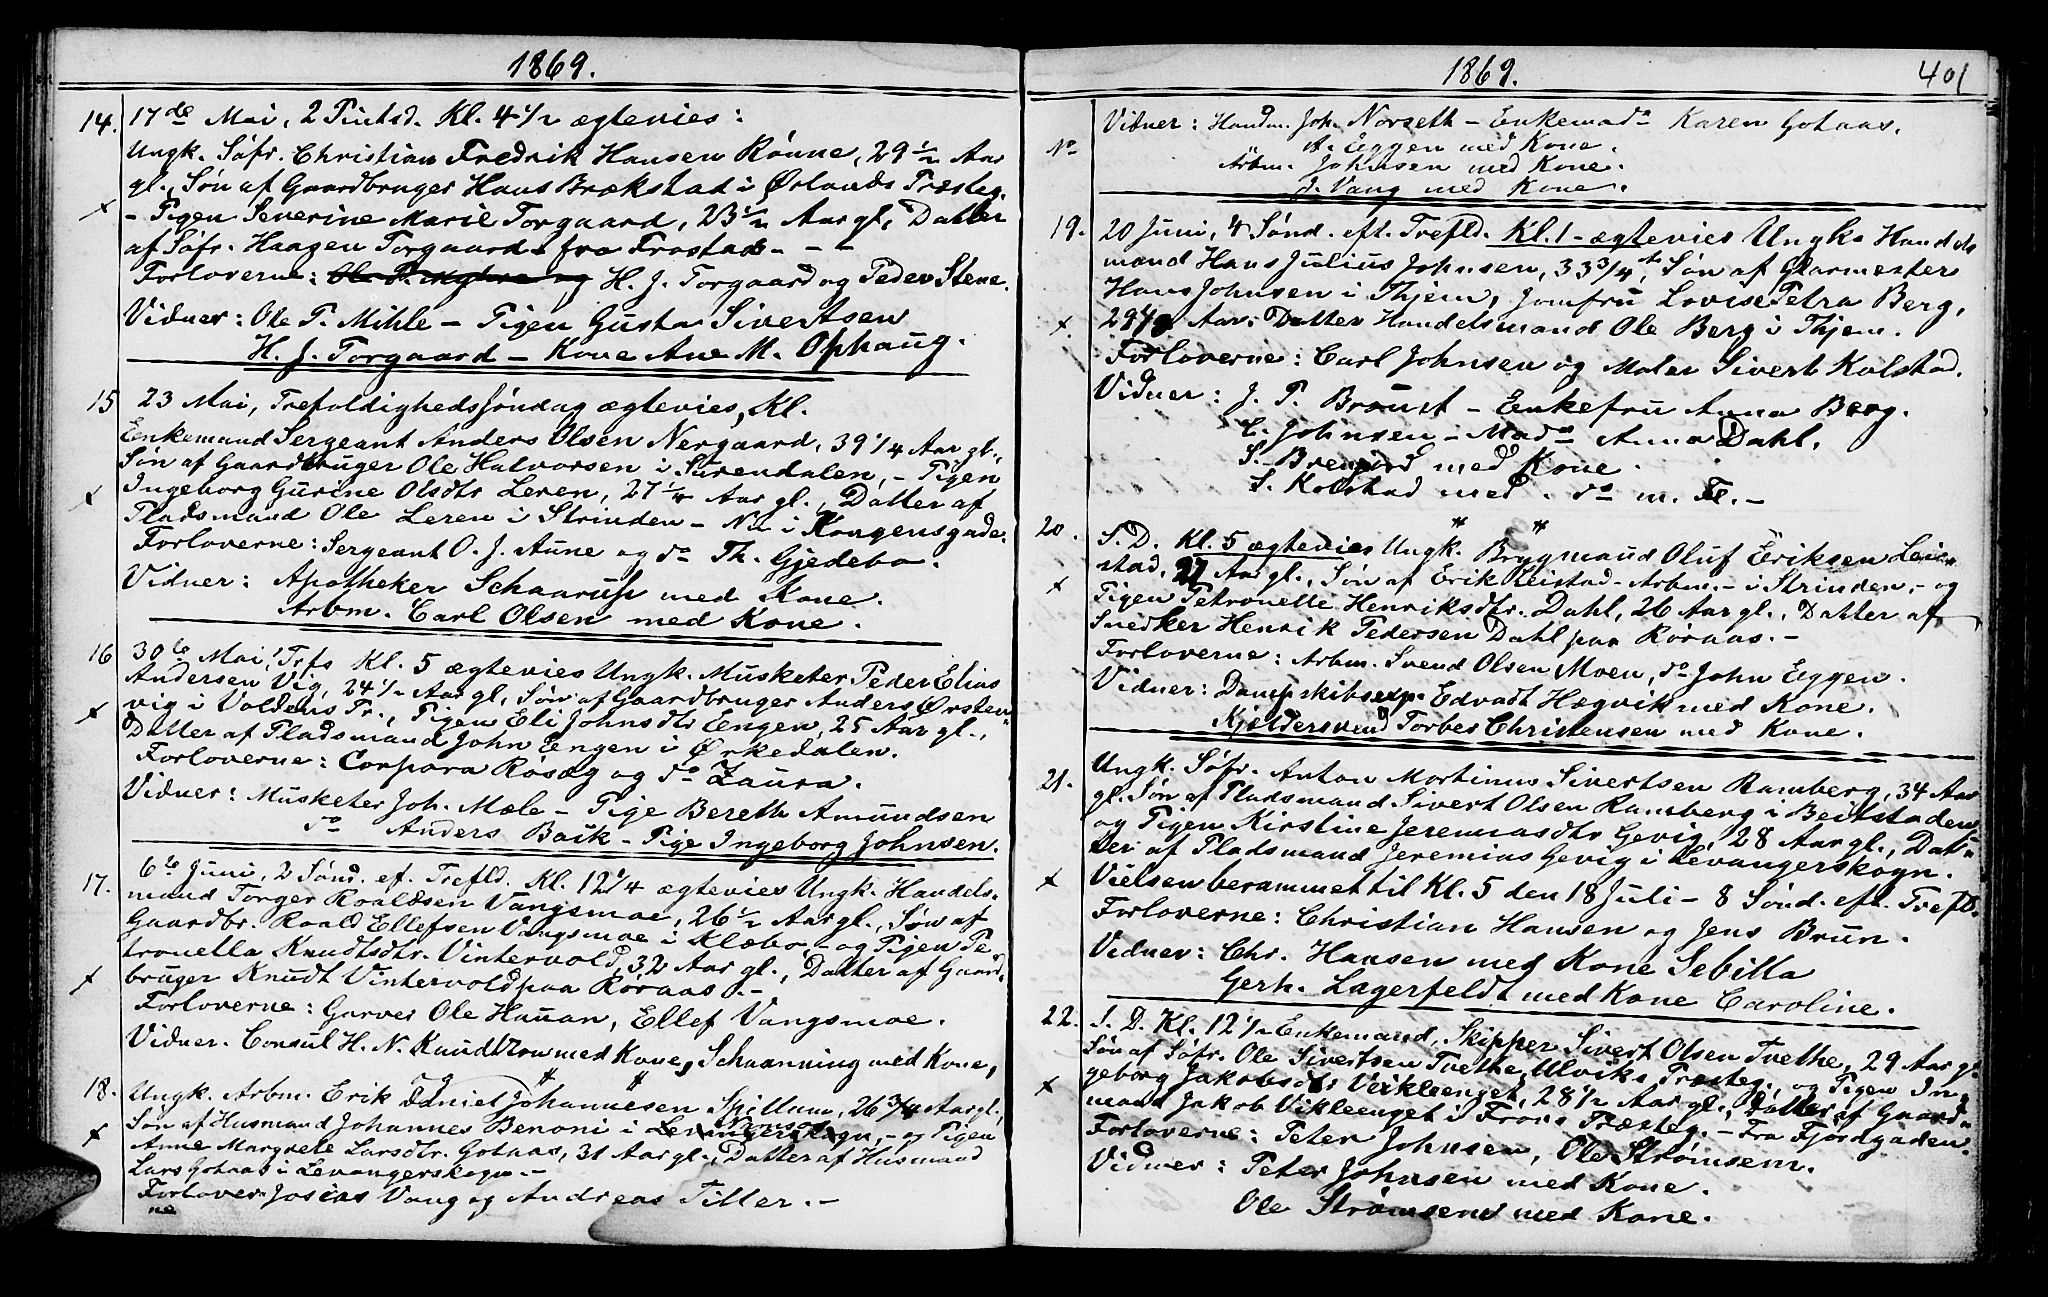 1869.
14. 17de Mai, 2 Pintsd. Kl. 4 1/2 ægtevies:
Ungk. Søfr. Christian Fredrik Hansen Rønne, 29 1/2 Aar
gl., Søn af Gaardbruger Hans Brækstad i Ørlands Præsteg.
- Pigen Severine Marie Torgaard, 23 1/2 Aar gl., Datter
af Søfr. Haagen Torgaard - fra Frostad - - -
Forloverne: H. J. Torgaard og Peder Stene.
Vidner: Ole P. Mihle - Pigen Gusta Sivertsen
H. J. Torgaard - Kone Ane M. Ophaug.
15 23 Mai, Trefoldighedssøndag ægtevies, Kl.
Enkemand Sergeant Anders Olsen Nergaard, 39 1/4 Aar gl.,
Søn af Gaardbruger Ole Halvorsen i Surendalen, - Pigen
Ingeborg Gurine Olsdtr Leren, 27 1/4 Aar gl., Datter af
Pladsmand Ole Leren i Strinden - Nu i Kongensgade.
Forloverne: Sergeant O. J. Aune og do Th. Gjedebo.
Vidner: Apotheker Schaarup med Kone.
Arbm. Carl Olsen med Kone.
16 30te Mai, Trfs Kl. 5 ægtevies Ungk. Musketer Peder Elias
Andersen Vig, 24 1/2 Aar gl, Søn af Gaardbruger Anders Ørsten
vig i Voldens Pr., Pigen Eli Johnsdtr Engen, 25 Aar gl.,
Datter af Pladsmand John Engen i Ørkedalen.
Forloverne: Corpora Røsæg og do Zaura.
Vidner: Musketer Joh. Mæle - Pige Bereth Amundsen
do Anders Baik - Pige Ingeborg Johnsen.
17. 6te Juni, 2 Sønd. ef. Trefld. Kl. 12 1/4 ægtevies Ungk. Handels-
mand Torger Roaldsen Vangsmoe, 26 1/2 Aar gl., Søn af
Gaardbr. Roald Ellefsen Vangsmoe i Klæbo - og Pigen Pe-
tronella Knudtsdtr. Vintervold, 32 Aar gl., Datter af Gaard-
bruger Knudt Vintervold paa Røraas. -
Forloverne: Garver Ole Hauan, Ellef Vangsmoe.
Vidner. Consul H. N. Knudtzow med Kone, Schaanning med Kone,
18. Ungk. Arbm. Erik Daniel Johannesen Spillum, 26 3/4 Aar gl,
Søn af Husmand Johannes Benoni i Namsos, - og Pigen
Anne Margrete Larsdtr. Gotaas, 31 Aar gl., Datter af Husmand
Lars Gotaas i Levangerskogn. -
Forlover- Josias Vang og Andreas Tiller. -
ne
1869. 401
Vidner: Handm. Joh. Norseth - Enkemade Karen Gotaas.
No A. Eggen med Kone.
Arbm. Johnsen med Kone.
J. Vang med Kone.
19. 20 Juni, 4 Sønd. eft. Trefld. Kl. 1 - ægtevies Ungk. Handels
mand Hans Julius Johnsen, 33 3/4, Søn af Glarmester
Hans Johnsen i Thjem, Jomfru Lovise Petra Berg,
29 Aar. Datter Handelsmand Ole Berg i Thjem.
Forloverne: Carl Johnsen og Maler Sivert Kolstad.
Vidner: J. P. Broust - Enkefru Anna Berg.
C. Johnsen - Made Anna Dahl.
S. Brenjord med Kone.
S. Kolstad med. do m. Fl. -
20. S. D. Kl. 5 ægtevies Ungk. Brygmand Oluf Eriksen Lei-
stad, 27 Aar gl., Søn af Erik Leistad - Arbm. - i Strinden, - og
Pigen Petronelle Henriksdtr. Dahl, 26 Aar gl., Datter af
Snedker Henrik Pedersen Dahl paa Røraas. -
Forloverne: Arbm. Svend Olsen Moen, do John Eggen.
Vidner: Dampskibsexp. Edvadt Hægvik med Kone.
Kjeldersvend Torbes Christensen med Kone.
21. Ungk. Søfr. Anton Martinus Sivertsen Ramberg, 34 Aar
gl. Søn af Pladsmand Sivert Olsen Ramberg i Beitstaden,
og Pigen Kirstine Jeremiasdtr Gevig, 28 Aar gl., Dat-
ter af Pladsmand Jeremias Gevig i Levangerskogn.
Vielsen berammet til Kl. 5 den 18 Juli - 8 Sønd. eft. Trefld.
Forloverne: Christian Hansen og Jens Brun.
Vidner: Chr. Hansen med Kone Sebilla
Gerh. Lagerfeldt med Kone Caroline.
22. S. D. Kl. 12 1/2 Enkemand, Skipper Sivert Olsen Tvethe, 29 Aar gl.
Søn af Søfr. Ole Sivertsen Tvethe, Ulviks Præsteg., og Pigen In-
geborg Jakobsdtr Vikleenget, 28 1/2 Aar gl., Datter af Gaard-
mand Jakob Vikleenget i Frors Præsteg. - Fra Fjordgaden.
Forloverne: Peter Johnsen, Ole Strømsem.
Vidner: Peter Johnsen med Kone.
Ole Strømsem med Kone.